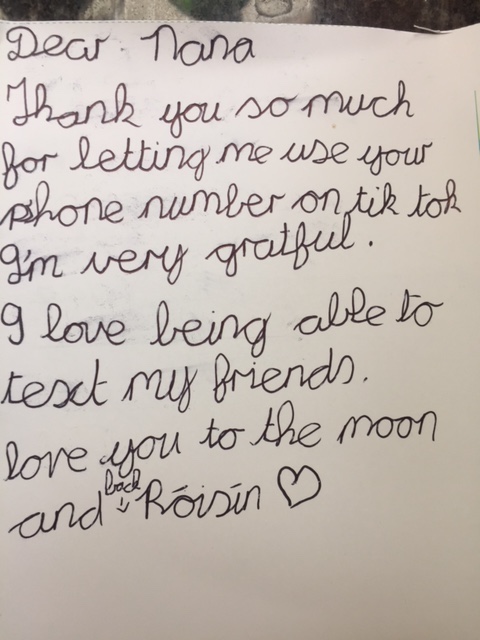 Dear Nana
Thank you so much
for letting me use your
phone number on tik tok
I'm very gratful.
I love being able to
text my friends.
love you to the moon
and back Róisín ♡